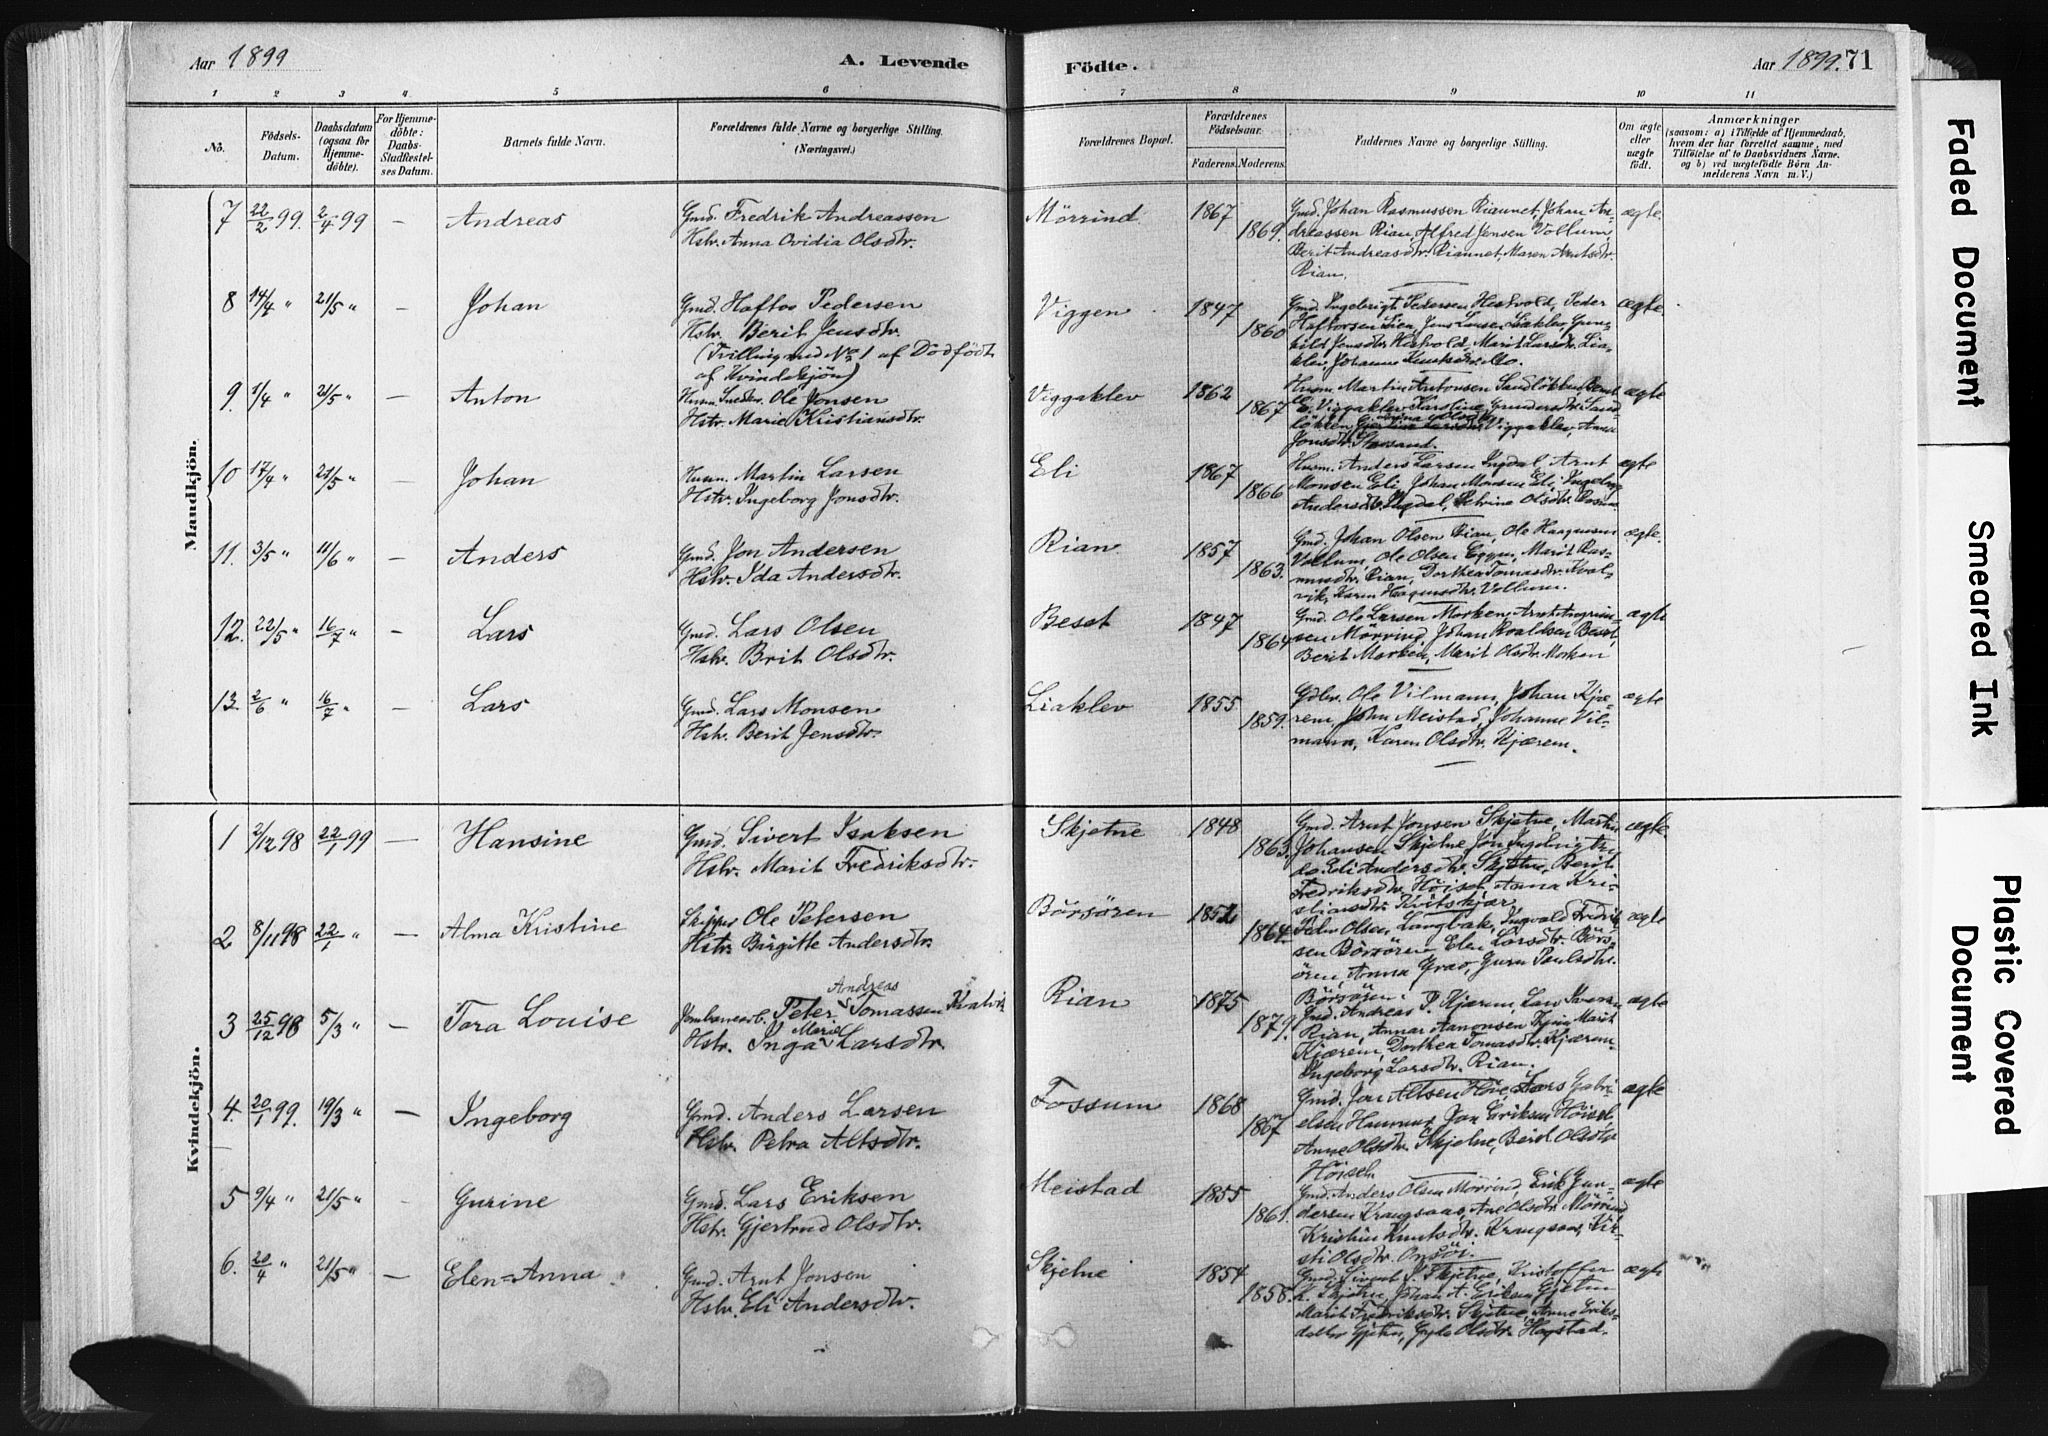 Aar 1899
A. Levende
Födte.
Aar 1899. 71
1 2 3 4 5 6 7 8 9 10 11
No.
Födsels-Datum.
Daabsdatum (ogsaa for Hjemmedöbte).
For Hjemmedöbte: Daabs-Stadfæstelses Datum.
Barnets fulde Navn.
Forældrenes fulde Navne og borgerlige Stilling.
(Næringsvei.)
Forældrenes Bopæl.
Forældrenes Födselsaar.
Faderens. Moderens.
Faddernes Navne og borgerlige Stilling.
Om ægte eller uægte födt.
Anmærkninger
(saasom: a) i Tilfælde af Hjemmedaab,
hvem der har forrettet samme, med
Tilföielse af to Daabsvidners Navne.
og b) ved uægtefödte Börn An-
melderens Navn m. V.)
Mandkjön.
7 22/2 99. 2/4 99 — Andreas Gmd. Fredrik Andreassen Mörrind 1867 Gmd. Johan Rasmussen Riannet, Johan An- ægte.
Hstr. Anna Ovidia Olsdtr. 1869. dreassen Rian, Alfred Jensen Vollum
Berit Andreasdtr. Riannet, Maren Arntsdtr.
Rian.
8 14/4 " 21/5 " — Johan Gmd. Haftor Pedersen Viggen 1847 Gmd. Ingebrigt Pedersen Heskvold, Peder ægte
Hstr. Berit Jensdtr. 1860 Haftorsen Lien, Jens Larsen Liaklev, Gun-
(Tvilling med No 1 af Dödfödt hild Jensdtr. Heskvold, Marit Larsdtr. Lia-
af Kvindekjön) klev, Johanna
9. 1/4 " 21/5 " — Anton Husm. Snedker Ole Jonsen Viggaklev 1862 Husm. Martin Antonsen Sandlökken ægte
Hstr. Marie Kristiansdtr. 1867 E. Viggaklev, Karoline Gundersdtr. Sand-
lökken, Viggaklev, Anna
Jonsdtr.
10 17/4 " 21/5 " — Johan Husm. Martin Larsen Eli 1867 Husm. Anders Larsen Ingdal, Arnt ægte
Hstr. Ingeborg Jonsdtr. 1866 Monsen Eli, Johan Monsen Eli, Ingeborg
Andersdtr. Ingdal, Olsdtr.
11. 3/5 " 11/6 " — Anders Gmd. Jon Andersen Rian 1857 Gmd. Johan Olsen Rian, Ole Haagensen ægte.
Hstr. Ida Andersdtr. 1863. Vollum, Ole Olsen Eggen, Marit Ras-
musdtr. Rian, Dorthea Tomasdtr. Kval-
vik, Karen Haagensdtr. Vollum.
12. 22/5 " 16/7 " — Lars Gmd. Lars Olsen Beset 1847 Gmd. Ole Larsen Morken, Arnt Angrim- ægte
Hstr. Brit Olsdtr. 1864 sen Mörrind, Johan Roaldsen Beset,
Berit Morken, Marit Olsdtr. Morken
13. 2/6 " 16/7 " — Lars Gmd. Lars Monsen Liaklev 1855 Gdbr. Ole Vilmann, Johan Kjæ- ægte
Hstr. Berit Jensdtr. 1859. rem, John Meistad, Johanne Vil-
mann, Karen Olsdtr. Kjærem.
Kvindekjön.
1 2/12 98 22/1 99 — Hansine Gmd. Sivert Isaksen Skjetne 1848 Gmd. Arnt Jonsen Skjetne, Martin ægte
Hstr. Marit Fredriksdtr. 1863. Johansen Skjetne, Jon Ingebrigtsen
do, Eli Andersdtr. Skjetne, Berit
Fredriksdtr. Höiset, Anna Kri-
stiansdtr. Kvitskjær
2 8/11 98 22/1 " — Alma Kristine Skipper Ole Petersen Börsören 1852 Peder Olsen Langbak, Ingvald Fredrik- ægte
Hstr. Birgitte Andersdtr. 1864. sen Börsören, Elen Larsdtr. Börs-
ören, Anna Grav, Guru Paulsdtr.
Börsören.
3 25/12 98 5/3 " — Tora Louise Jernbanearb. Peter Andreas Tomassen Kvalvik Rian 1875 Gmd. Andreas P. Kjærem, Lars ægte
Hstr. Inga Marie Larsdtr. 1879. Rian, Aamonsen Marit
Kjærem, Dorthea Tomasdtr. Kjærem
Ingeborg Larsdtr. Rian.
4. 20/1 99. 19/3 " — Ingeborg Gmd. Anders Larsen Fossum 1868 Gmd. Jon Altsen Lars Gabri- ægte
Hstr. Petra Altsdtr. 1867 elsen Jon Eriksen Höiset,
Anne Olsdtr. Skjetne, Berit Olsdtr.
Höiset.
5 9/4 " 21/5 " — Gurine Gmd. Lars Eriksen Meistad 1855 Gmd. Anders Olsen Mörrind, Erik Gun- ægte
Hstr. Gjertrud Olsdtr. 1861. dersen Krangsaas, Ane Olsdtr. Mörrind,
Kristin Knutsdtr. Krangsaas, Kir-
sti Olsdtr. Onsöi.
6. 20/4 " 21/5 " — Elen=Anna Gmd. Arnt Jonsen Skjetne 1854 Gmd. Sivert I. Skjetne, Kristoffer ægte
Hstr. Eli Andersdtr. 1858. K. Skjetne, Johan A. Eriksen Gjetin
Marit Fredriksdtr. Skjetne, Anne Eriks-
datter Gjetin, Gyda Olsdtr. Hagstad.
Faded Document
Smeared Ink
Plastic Covered
Document